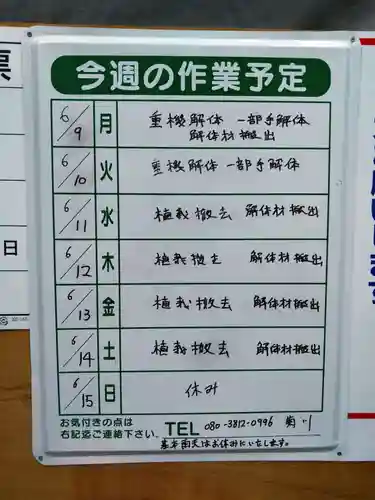 今週の作業予定
6/9 月 重機解体 一部手解体
解体材搬出
6/10 火 重機解体 一部手解体
6/11 水 植栽撤去 解体材搬出
6/12 木 植栽撤去 解体材搬出
6/13 金 植栽撤去 解体材搬出
6/14 土 植栽撤去 解体材搬出
6/15 日 休み
お気付きの点は
右記迄ご連絡下さい。
TEL 080-3812-0996 菊川
基本雨天はお休みにいたします。
票
日